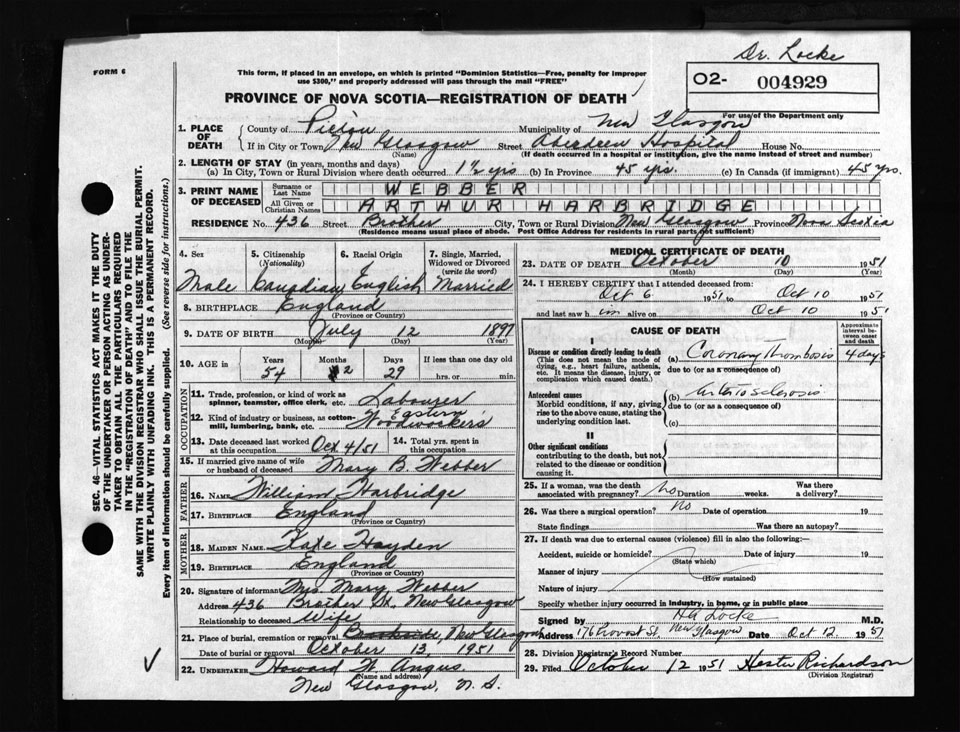 Dr. Locke
FORM 6
This form, if placed in an envelope, on which is printed "Dominion Statistics—Free, penalty for improper
use $300," and properly addressed will pass through the mail "FREE"
O2- 004929
For use of the Department only
PROVINCE OF NOVA SCOTIA—REGISTRATION OF DEATH
1. PLACE OF DEATH
County of Pictou Municipality of New Glasgow
If in City or Town New Glasgow Street Aberdeen Hospital House No.
(Name) (If death occurred in a hospital or institution, give the name instead of street and number)
2. LENGTH OF STAY (in years, months and days)
(a) In City, Town or Rural Division where death occurred 1½ yrs (b) In Province 45 yrs. (c) In Canada (if immigrant) 45 yrs.
3. PRINT NAME OF DECEASED
Surname or Last Name WEBBER
All Given or Christian Names ARTHUR HARBRIDGE
RESIDENCE No. 436 Street Brother City, Town or Rural Division New Glasgow Province Nova Scotia
(Residence means usual place of abode. Post Office Address for residents in rural parts not sufficient)
4. Sex
Male
5. Citizenship
(Nationality)
Canadian
6. Racial Origin
English
7. Single, Married, Widowed or Divorced
(write the word)
Married
8. BIRTHPLACE England
(Province or Country)
9. DATE OF BIRTH July 12 1897
(Month) (Day) (Year)
10. AGE in Years Months Days If less than one day
54 2 29 hrs. or min.
OCCUPATION
11. Trade, profession, or kind of work as
spinner, teamster, office clerk, etc. Labourer
12. Kind of industry or business, as cotton-
mill, lumbering, bank, etc. Eastern Woodworkers
13. Date deceased last worked at this occupation Oct 4/51
14. Total yrs. spent in this occupation
15. If married give name of wife
or husband of deceased Mary B. Webber
FATHER
16. NAME William Harbridge
17. BIRTHPLACE England
(Province or Country)
MOTHER
18. MAIDEN NAME Kate Hayden
19. BIRTHPLACE England
(Province or Country)
20. Signature of informant Mrs. Mary Webber
Address 436 Brother St. New Glasgow
Relationship to deceased Wife
21. Place of burial, cremation or removal Brookside, New Glasgow
Date of burial or removal October 13, 1951
22. UNDERTAKER Howard W. Angus
(Name and address)
New Glasgow, N. S.
MEDICAL CERTIFICATE OF DEATH
23. DATE OF DEATH October 10 1951
(Month) (Day) (Year)
24. I HEREBY CERTIFY that I attended deceased from:
Oct 6 1951 to Oct 10 1951
and last saw h im alive on Oct 10 1951
CAUSE OF DEATH
Approximate interval between onset and death
I
Disease or condition directly leading to death
(This does not mean the mode of
dying, e.g., heart failure, asthenia,
etc. It means the disease, injury, or
complication which caused death.)
(a) Coronary Thrombosis 4 days
due to (or as a consequence of)
Antecedent causes
Morbid conditions, if any, giving
rise to the above cause, stating the
underlying condition last.
(b) Arterio Sclerosis
due to (or as a consequence of)
(c)
II
Other significant conditions
contributing to the death, but not
related to the disease or condition
causing it.
25. If a woman, was the death
associated with pregnancy? No Duration weeks. Was there a delivery?
26. Was there a surgical operation? No Date of operation 19
State findings Was there an autopsy?
27. If death was due to external causes (violence) fill in also the following:—
Accident, suicide or homicide? Date of injury 19
(State which)
Manner of injury
(How sustained)
Nature of injury
Specify whether injury occurred in industry, in home, or in public place
Signed by HA Locke M.D.
Address 176 Provost St, New Glasgow Date Oct 12 1951
28. Division Registrar's Record Number
29. Filed October 12 1951 Hester Richardson
(Division Registrar)
SEC. 46—VITAL STATISTICS ACT MAKES IT THE DUTY
OF THE UNDERTAKER OR PERSON ACTING AS UNDER-
TAKER TO OBTAIN ALL THE PARTICULARS REQUIRED
IN THE "REGISTRATION OF DEATH" AND TO FILE THE
SAME WITH THE DIVISION REGISTRAR WHO SHALL ISSUE THE BURIAL PERMIT.
WRITE PLAINLY WITH UNFADING INK. THIS IS A PERMANENT RECORD.
Every item of information should be carefully supplied. (See reverse side for instructions.)